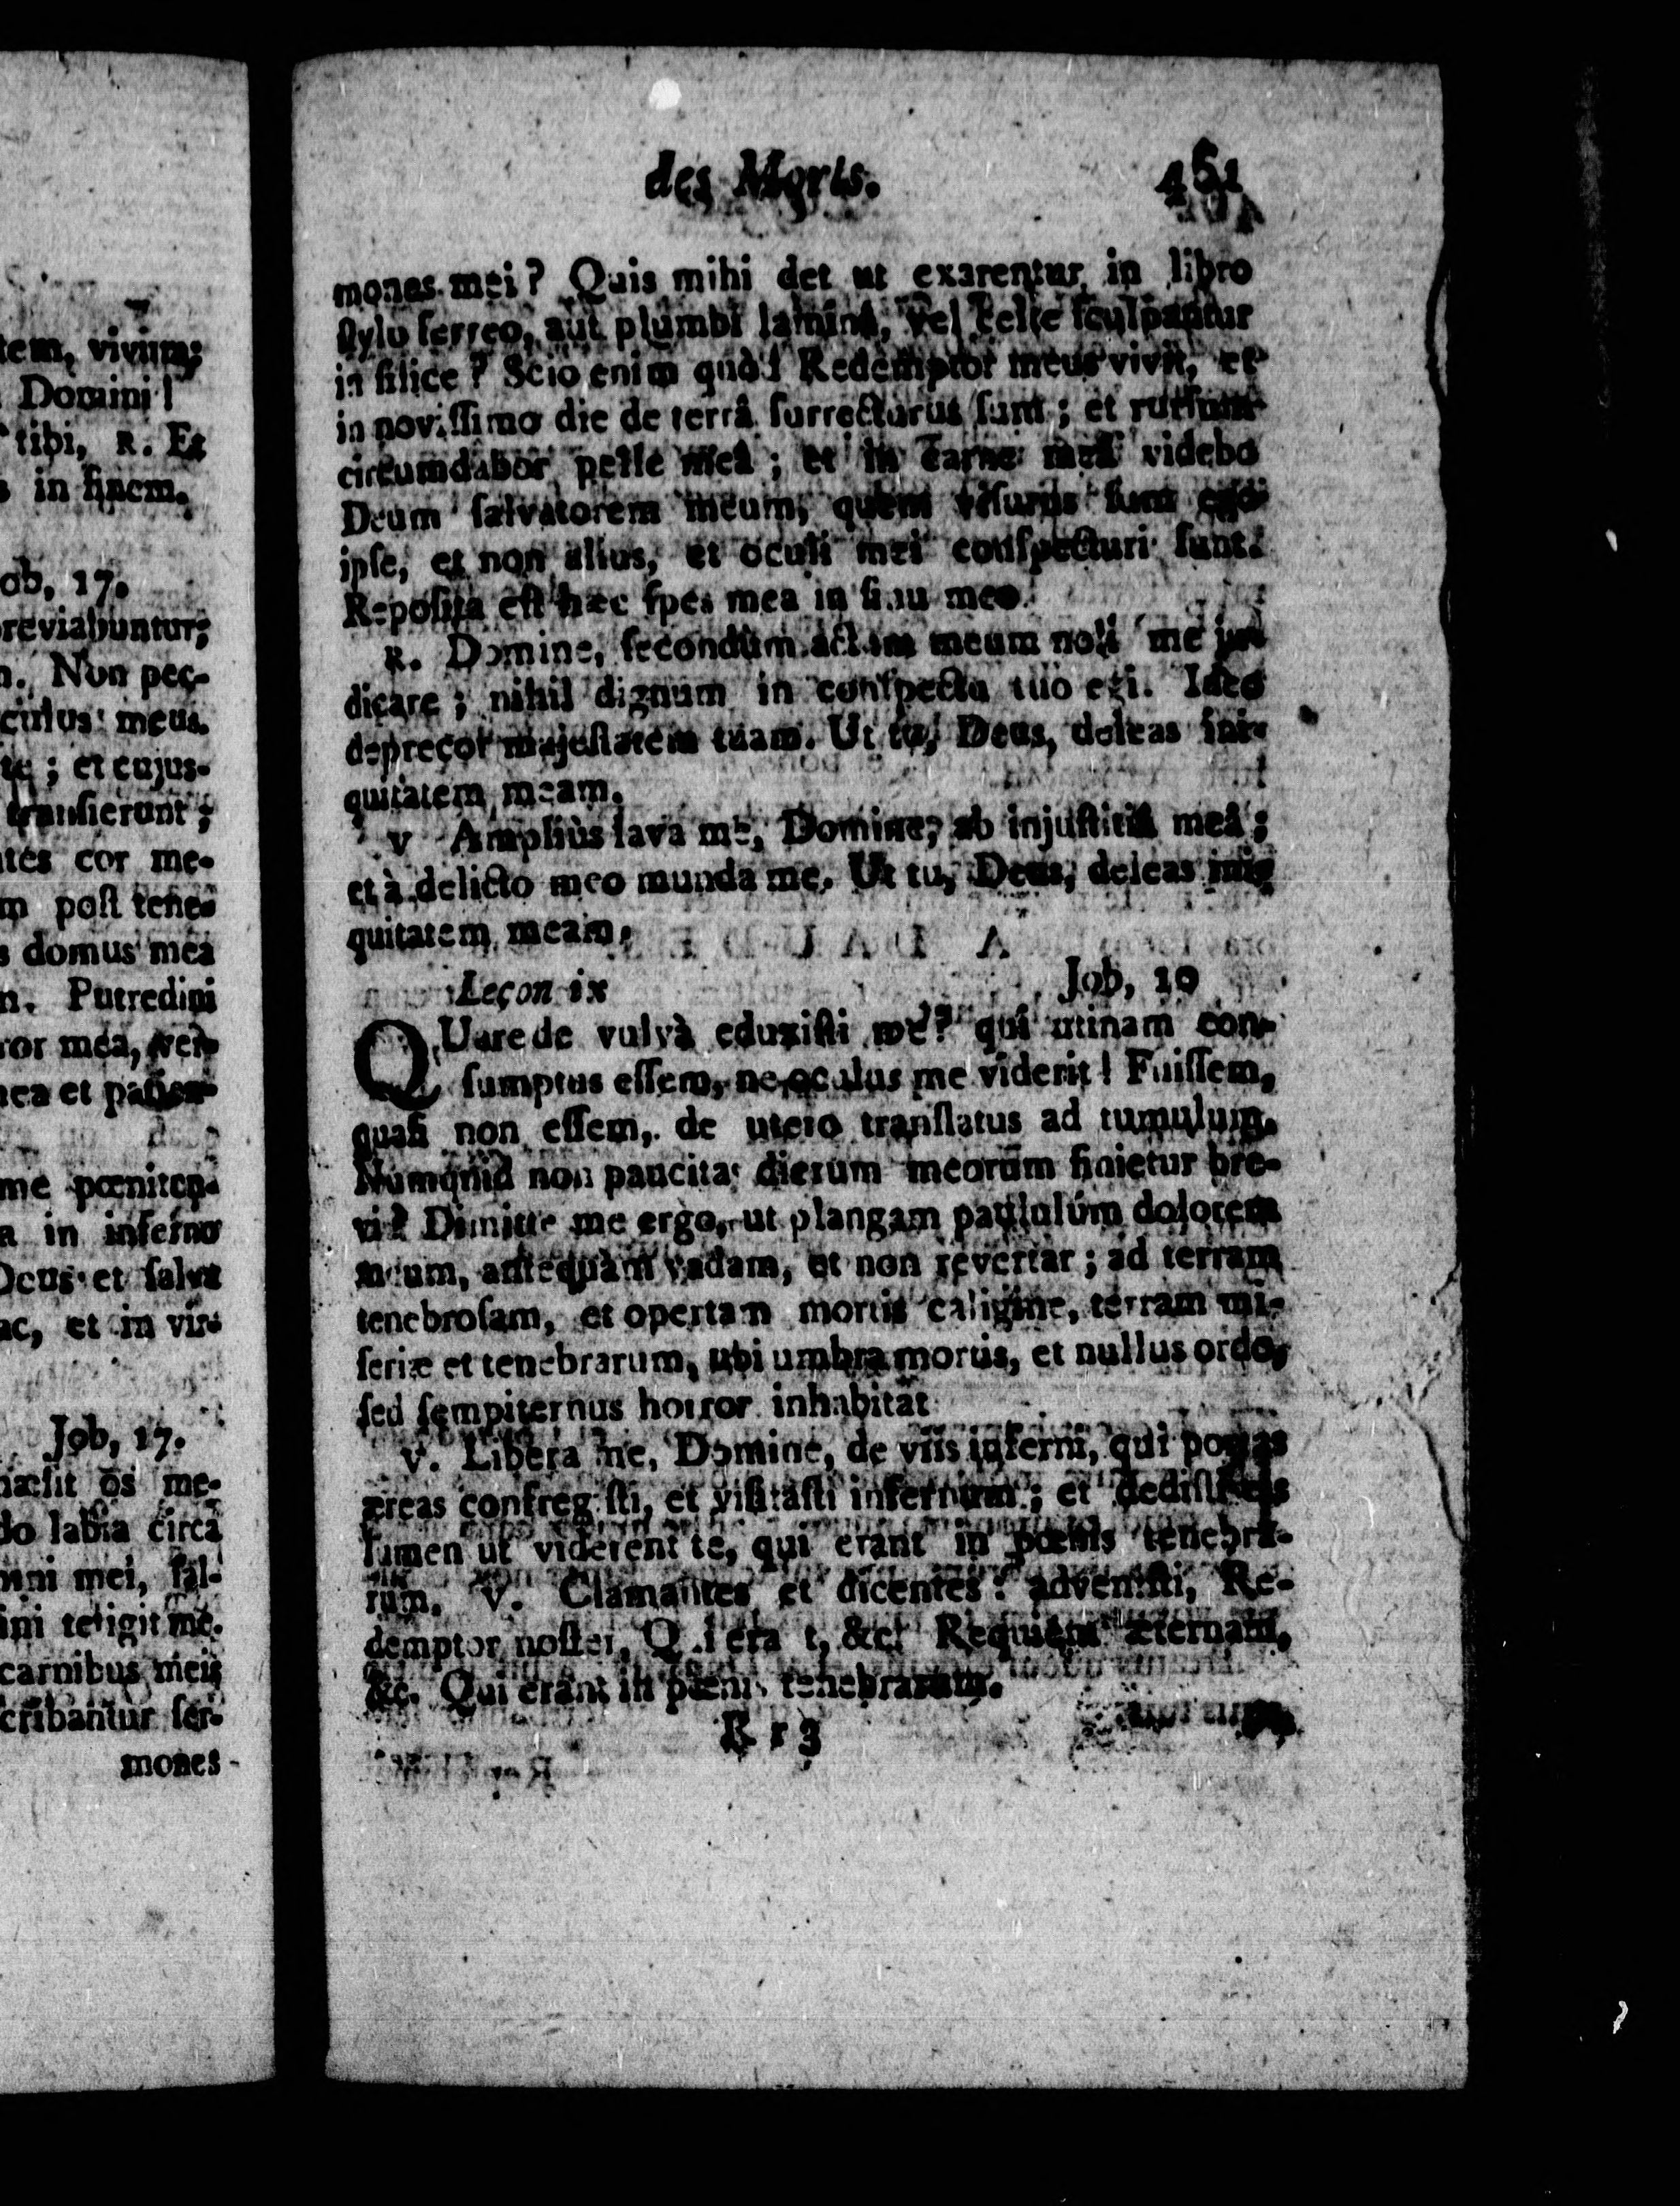 tem, vivim;
Domini!
tibi, R. Et
in finem.
ob, 17.
breviabuntur;
n. Non pec-
culus meus.
te; et cujus-
transierunt;
tes cor me-
m post tene-
s domus mea
n. Putredini
ror mea, ver-
nea et patien-
me pœniten-
a in inferno
Deus et salva
ac, et in vir-
Job, 17.
hæsit os me-
do labia circa
mni mei, sal-
ini tetigit me.
carnibus meis
cribantur ser-
mones
des Morts. 461
mones mei? Quis mihi det ut exarentur in libro
stylo ferreo, aut plumbi laminâ, vel celte sculpantur
in silice? Scio enim quòd Redemptor meus vivit, et
in novissimo die de terrâ surrecturus sum; et rursum
circumdabor pelle meâ; et in carne meâ videbo
Deum salvatorem meum, quem visurus sum ego
ipse, et non alius, et oculi mei conspecturi sunt.
Reposita est hæc spes mea in sinu meo.
R. Domine, secondùm actum meum noli me ju-
dicare; nihil dignum in conspectu tuo egi. Ideo
deprecor majestatem tuam. Ut tu, Deus, deleas ini-
quitatem meam.
V Ampliùs lava me, Domine, ab injustitiâ meâ;
et à delicto meo munda me. Ut tu, Deus, deleas ini-
quitatem meam.
Leçon ix Job, 10
QUare de vulvà eduxisti me? qui utinam con-
sumptus essem, ne oculus me viderit! Fuissem,
quasi non essem, de utero translatus ad tumulum.
Numquid non paucitas dierum meorum finietur bre-
vi? Dimitte me ergo, ut plangam paululùm dolorem
meum, antequàm vadam, et non revertar; ad terram
tenebrosam, et opertam mortis caligine, terram mi-
seriæ et tenebrarum, ubi umbra mortis, et nullus ordo,
sed sempiternus horror inhabitat
V. Libera me, Domine, de viis inferni, qui portas
æreas confregisti, et visitasti infernum; et dedisti eis
lumen ut viderent te, qui erant in pœnis tenebra-
rum. V. Clamantes et dicentes: advenisti, Re-
demptor noster, Qui erat, &c. Requiem æternam,
&c. Qui erant in pœnis tenebrarum.
R r 3